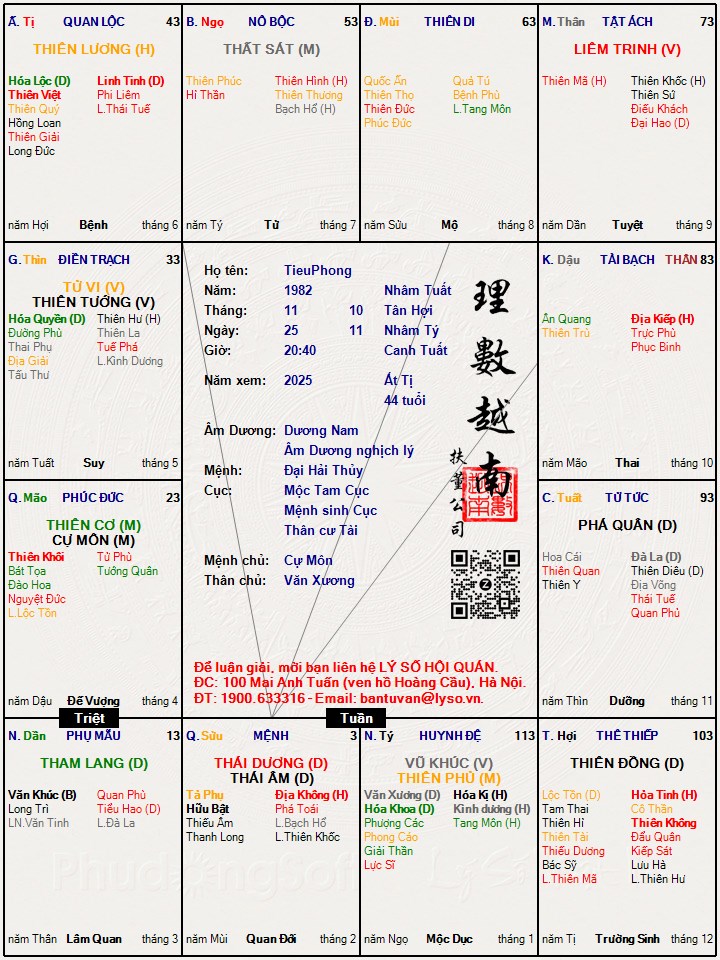 Ấ. Tị QUAN LỘC 43
THIÊN LƯƠNG (H)
Hóa Lộc (D) Linh Tinh (D)
Thiên Việt Phi Liêm
Thiên Quý L.Thái Tuế
Hồng Loan
Thiên Giải
Long Đức
năm Hợi Bệnh tháng 6
B. Ngọ NÔ BỘC 53
THẤT SÁT (M)
Thiên Phúc Thiên Hình (H)
Hỉ Thần Thiên Thương
Bạch Hổ (H)
năm Tý Tử tháng 7
Đ. Mùi THIÊN DI 63
Quốc Ấn Quả Tú
Thiên Thọ Bệnh Phù
Thiên Đức L.Tang Môn
Phúc Đức
năm Sửu Mộ tháng 8
M. Thân TẬT ÁCH 73
LIÊM TRINH (V)
Thiên Mã (H) Thiên Khốc (H)
Thiên Sứ
Điếu Khách
Đại Hao (D)
năm Dần Tuyệt tháng 9
G. Thìn ĐIỀN TRẠCH 33
TỬ VI (V)
THIÊN TƯỚNG (V)
Hóa Quyền (D) Thiên Hư (H)
Đường Phù Thiên La
Thai Phụ Tuế Phá
Địa Giải L.Kình Dương
Tấu Thư
năm Tuất Suy tháng 5
Họ tên: TieuPhong
Năm: 1982 Nhâm Tuất
Tháng: 11 10 Tân Hợi
Ngày: 25 11 Nhâm Tý
Giờ: 20:40 Canh Tuất
Năm xem: 2025 Ất Tị
44 tuổi
Âm Dương: Dương Nam
Âm Dương nghịch lý
Mệnh: Đại Hải Thủy
Cục: Mộc Tam Cục
Mệnh sinh Cục
Thân cư Tài
Mệnh chủ: Cự Môn
Thân chủ: Văn Xương
理數越南
扶董公司
Để luận giải, mời bạn liên hệ LÝ SỐ HỘI QUÁN.
ĐC: 100 Mai Anh Tuấn (ven hồ Hoàng Cầu), Hà Nội.
ĐT: 1900.633316 - Email: bantuvan@lyso.vn.
K. Dậu TÀI BẠCH THÂN 83
Ân Quang Địa Kiếp (H)
Thiên Trù Trực Phù
Phục Binh
năm Mão Thai tháng 10
Q. Mão PHÚC ĐỨC 23
THIÊN CƠ (M)
CỰ MÔN (M)
Thiên Khôi Tử Phù
Bát Tọa Tướng Quân
Đào Hoa
Nguyệt Đức
L.Lộc Tồn
năm Dậu Đế Vượng tháng 4
C. Tuất TỬ TỨC 93
PHÁ QUÂN (D)
Hoa Cái Đà La (D)
Thiên Quan Thiên Diêu (D)
Thiên Y Địa Võng
Thái Tuế
Quan Phủ
năm Thìn Dưỡng tháng 11
Triệt
Tuần
N. Dần PHỤ MẪU 13
THAM LANG (D)
Văn Khúc (B) Quan Phù
Long Trì Tiểu Hao (D)
LN.Văn Tinh L.Đà La
năm Thân Lâm Quan tháng 3
Q. Sửu MỆNH 3
THÁI DƯƠNG (D)
THÁI ÂM (D)
Tả Phụ Địa Không (H)
Hữu Bật Phá Toái
Thiếu Âm L.Bạch Hổ
Thanh Long L.Thiên Khốc
năm Mùi Quan Đới tháng 2
N. Tý HUYNH ĐỆ 113
VŨ KHÚC (V)
THIÊN PHỦ (M)
Văn Xương (D) Hóa Kị (H)
Hóa Khoa (D) Kình dương (H)
Phượng Các Tang Môn (H)
Phong Cáo
Giải Thần
Lực Sĩ
năm Ngọ Mộc Dục tháng 1
T. Hợi THÊ THIẾP 103
THIÊN ĐỒNG (D)
Lộc Tồn (D) Hỏa Tinh (H)
Tam Thai Cô Thần
Thiên Hỉ Thiên Không
Thiên Tài Đẩu Quân
Thiếu Dương Kiếp Sát
Bác Sỹ Lưu Hà
L.Thiên Mã L.Thiên Hư
năm Tị Trường Sinh tháng 12